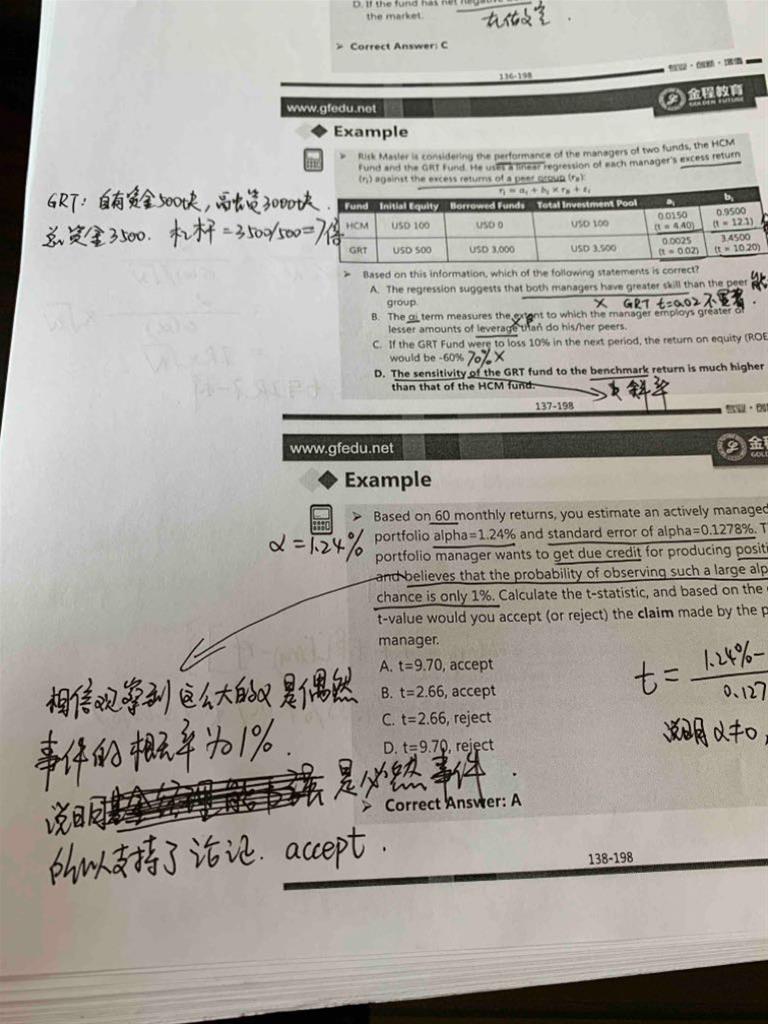 D. If the fund has net
the market.
➢ Correct Answer: C
136-198
专业·创新·增值
www.gfedu.net
金程教育
GOLDEN FUTURE
Example
➢ Risk Master is considering the performance of the managers of two funds, the HCM
Fund and the GRT Fund. He uses a linear regression of each manager's excess return
(ri) against the excess returns of a peer group (rB):
ri = ai + bi × rB + εi
GRT: 自有资金500块,
总资金3500. 杠杆=3500/500=7倍
Fund Initial Equity Borrowed Funds Total Investment Pool ai bi
HCM USD 100 USD 0 USD 100 0.0150 (t = 4.40) 0.9500 (t = 12.1)
GRT USD 500 USD 3,000 USD 3,500 0.0025 (t = 0.02) 3.4500 (t = 10.20)
➢ Based on this information, which of the following statements is correct?
A. The regression suggests that both managers have greater skill than the peer
group. × GRT t=0.02 不显著.
B. The αi term measures the extent to which the manager employs greater or
lesser amounts of leverage than do his/her peers.
C. If the GRT Fund were to loss 10% in the next period, the return on equity (ROE
would be -60% 70% ×
D. The sensitivity of the GRT fund to the benchmark return is much higher
than that of the HCM fund.
斜率
137-198
www.gfedu.net
Example
➢ Based on 60 monthly returns, you estimate an actively managed
portfolio alpha=1.24% and standard error of alpha=0.1278%. T
α=1.24%
portfolio manager wants to get due credit for producing positi
and believes that the probability of observing such a large alp
chance is only 1%. Calculate the t-statistic, and based on the
t-value would you accept (or reject) the claim made by the p
manager.
A. t=9.70, accept
B. t=2.66, accept
C. t=2.66, reject
D. t=9.70, reject
t = 1.24%-
0.127
说明α≠0,
相信观察到这么大的α是偶然
事件的概率为1%.
说明 是必然事件.
➢ Correct Answer: A
所以支持了 accept.
138-198